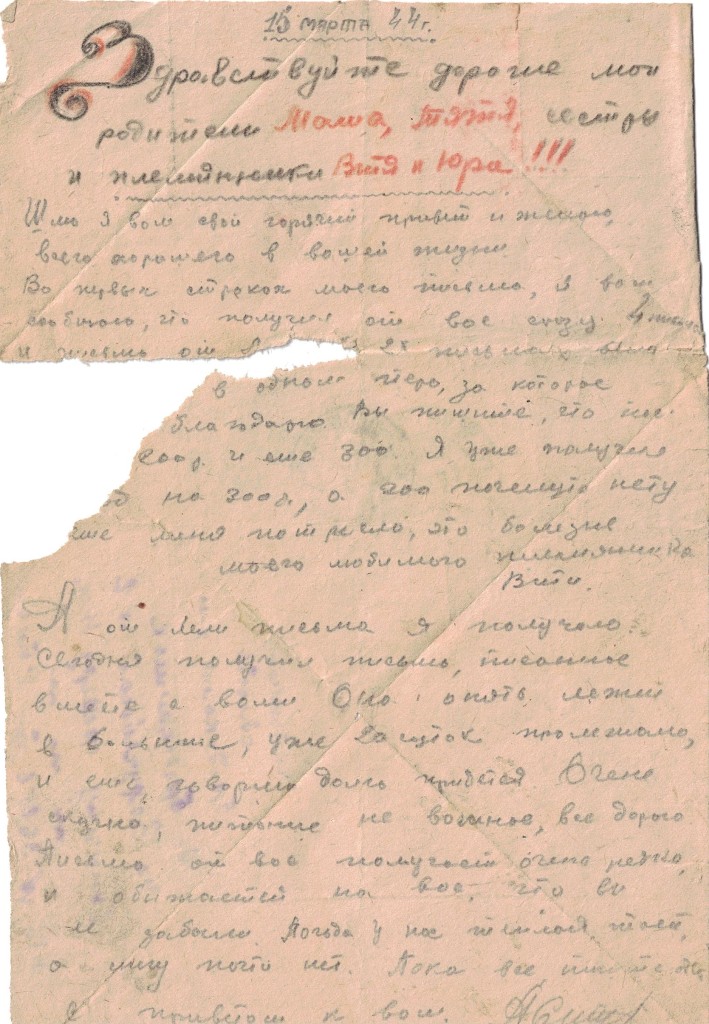 15 марта 44 г.
Здравствуйте дорогие мои
родители Мама, Тятя, сестры
и племянники Витя и Юра!!!
Шлю я вам свой горячий привет и желаю
всего хорошего в вашей жизни
Во первых строках моего письма, я вам
сообщаю, что получил от вас сразу 4
и письмо от
в одном перо, за которое
благодарю. Вы пишите, что
200 р. и еще 300. Я уже получил
на 300 р, а 200 почемуто нету
меня потресло, это болезнь
моего любимого племянника
Вити.
А от Лели письма я получаю.
Сегодня получил письмо, писанное
вместе с вами Она опять лежит
в больнице, уже 20 суток пролежала,
и еще говорит долго придется Очень
скучно, питание не важное, все дорого
Письма от вас получает очень редко,
и обижается на вас, что вы
забыли Погода у нас теплая тает,
а снегу почти нет. Пока все пишите
С приветом к вам.